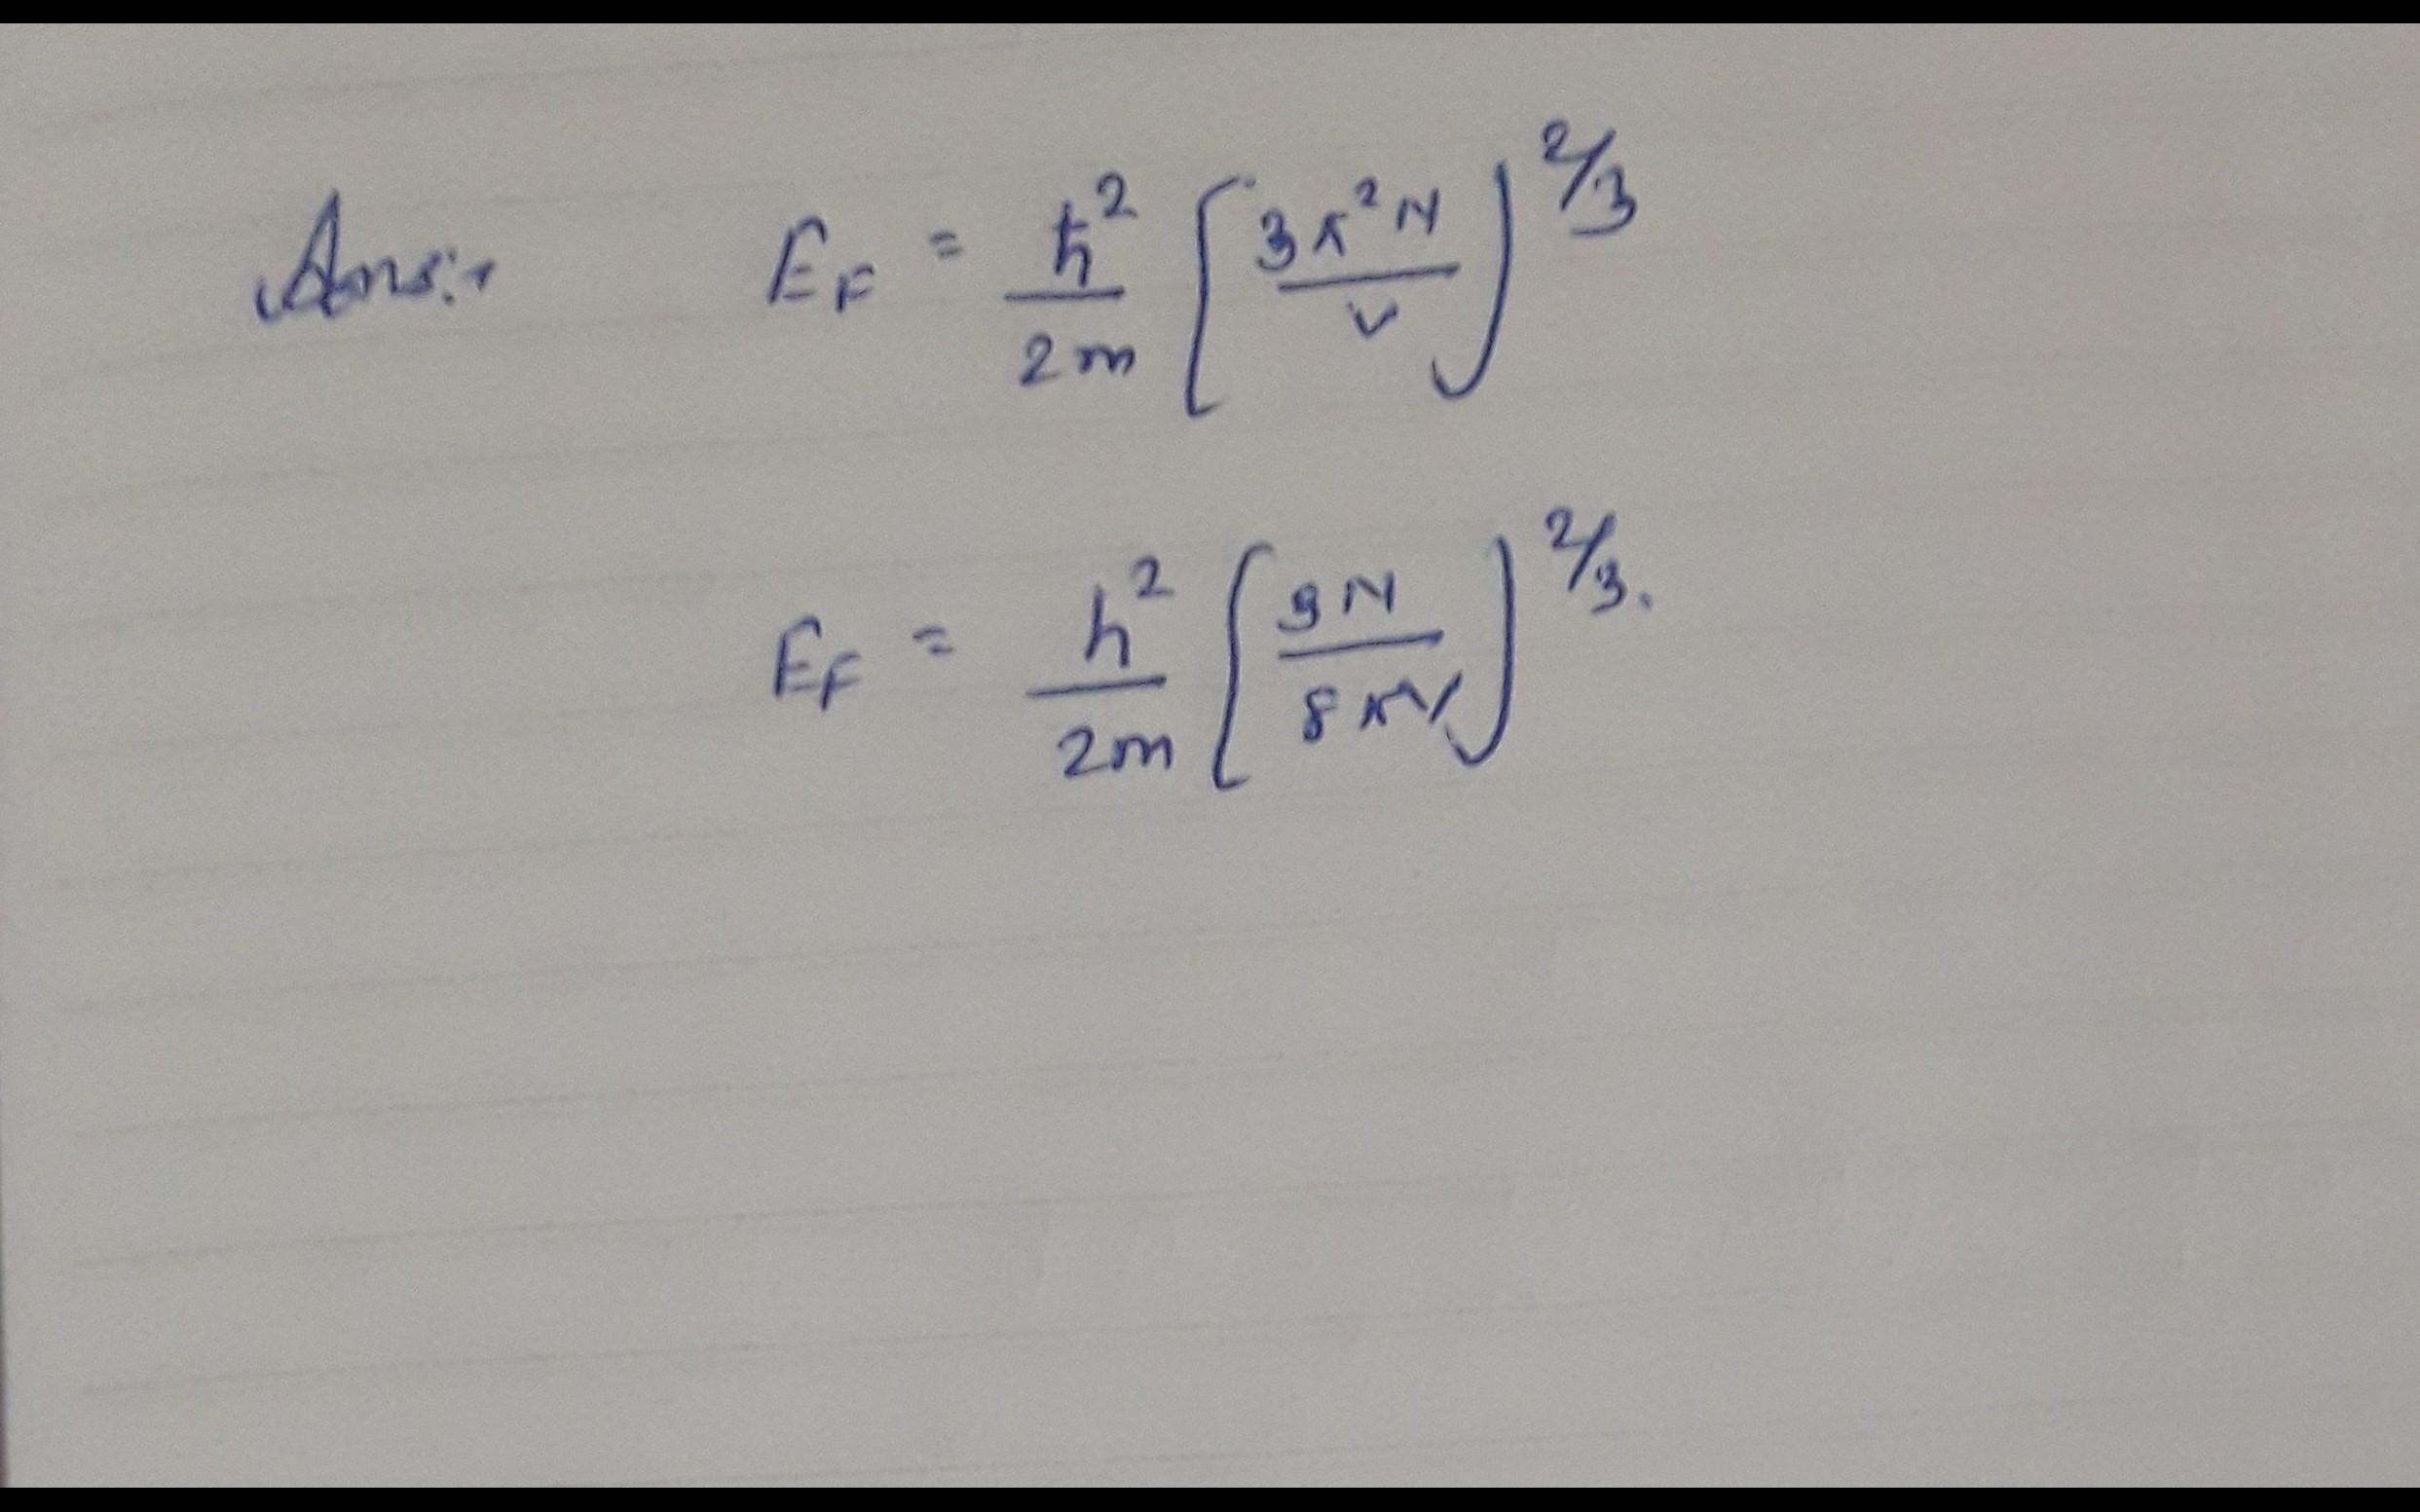 Ans:- E_F = ħ²/2m [3π²N/V)^2/3
E_F = h²/2m [3N/8πV)^2/3.